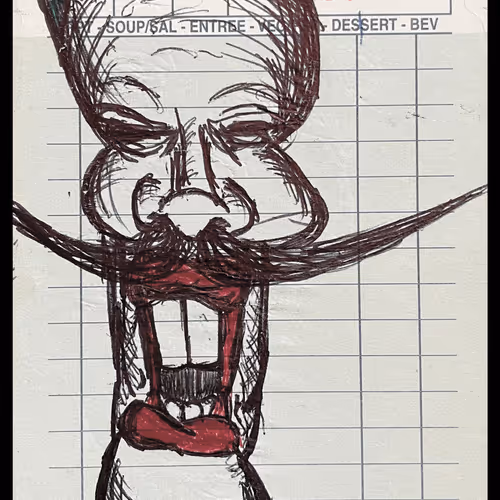 SOUP/SAL - ENTREE - VEG - DESSERT - BEV